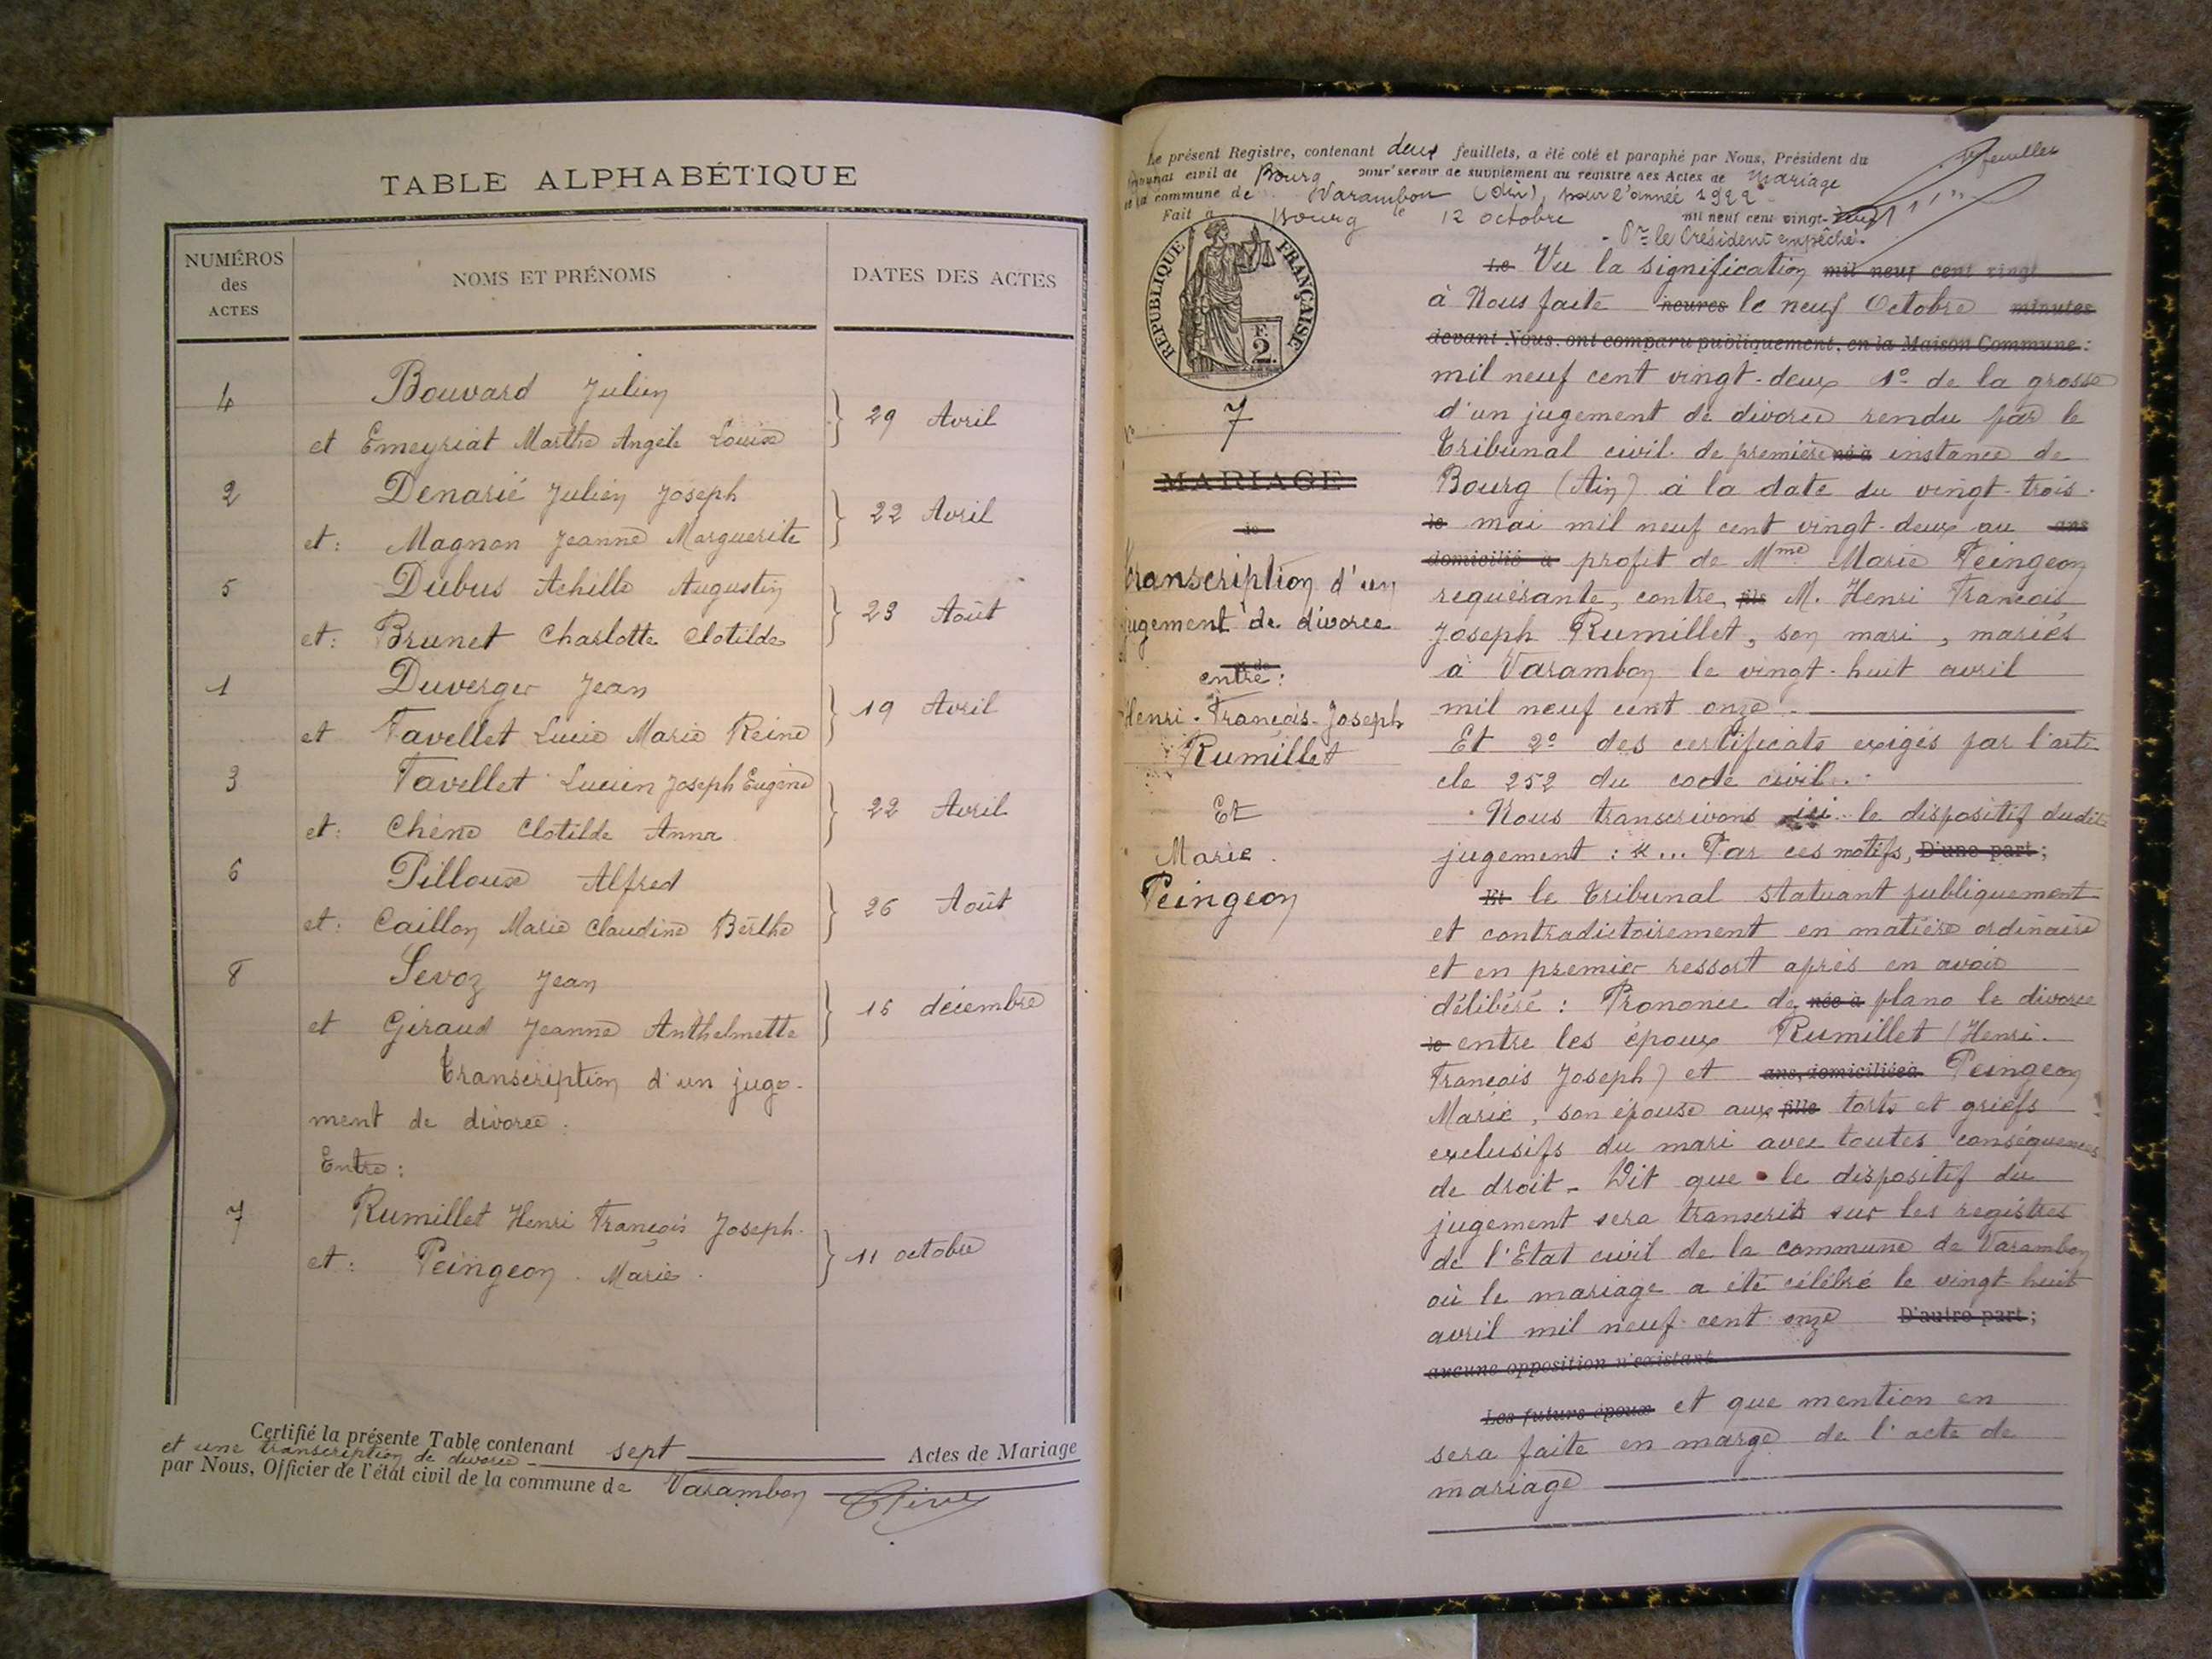 TABLE ALPHABÉTIQUE
NUMÉROS
des
ACTES
NOMS ET PRÉNOMS
DATES DES ACTES
4
Bouvard Julien
et Emeyriat Marthe Angèle Louise
29 Avril
2
Denarié Julien Joseph
et: Magnon Jeanne Marguerite
22 Avril
5
Dubus Achille Augustin
et: Brunet Charlotte Clotilde
23 Août
1
Duverger Jean
et Favellet Lucie Marie Reine
19 Avril
3
Favellet Lucien Joseph Eugène
et: Chêne Clotilde Anna
22 Avril
6
Pilloux Alfred
et: Caillon Marie Claudine Berthe
26 Août
8
Sevoz Jean
et Giraud Jeanne Anthelmette
16 décembre
Transcription d'un juge-
ment de divorce.
Entre:
7
Rumillet Henri François Joseph.
et: Peingeon. Marie.
11 octobre
Certifié la présente Table contenant sept Actes de Mariage
et une transcription de divorce
par Nous, Officier de l'état civil de la commune de Varambon
Le présent Registre, contenant deux feuillets, a été coté et paraphé par Nous, Président du
Tribunal civil de Bourg pour servir de supplément au registre des Actes de Mariage
de la commune de Varambon (Ain), pour l'année 1922.
Fait à Bourg le 12 octobre mil neuf cent vingt-deux
Pr. le Président empêché.
1er feuillet
RÉPUBLIQUE FRANÇAISE
F.
2
N° 7
MARIAGE
de
Transcription d'un
jugement de divorce
et de
entre:
Henri-François-Joseph
Rumillet
Et
Marie.
Peingeon
Le Vu la signification mil neuf cent vingt
à Nous faite heures le neuf Octobre minutes
devant Nous, ont comparu publiquement, en la Maison Commune:
mil neuf cent vingt-deux 1° de la grosse
d'un jugement de divorce rendu par le
Tribunal civil de première né à instance de
Bourg (Ain) à la date du vingt-trois
le mai mil neuf cent vingt-deux au ans
domicilié à profit de Mme Marie Peingeon
requérante, contre, fils M. Henri François
Joseph Rumillet, son mari, mariés
à Varambon le vingt-huit avril
mil neuf cent onze.
Et 2° des certificats exigés par l'arti-
cle 252 du code civil.
Nous transcrivons ici le dispositif dudit
jugement: «... Par ces motifs, D'une part;
Et le Tribunal statuant publiquement
et contradictoirement en matière ordinaire
et en premier ressort après en avoir
délibéré: Prononce de née à plano le divorce
le entre les époux Rumillet (Henri.
François Joseph) et ans, domiciliée à Peingeon
Marie, son épouse aux fille torts et griefs
exclusifs du mari avec toutes conséquences
de droit - Dit que le dispositif du
jugement sera transcrit sur les registres
de l'Etat civil de la commune de Varambon
où le mariage a été célébré le vingt-huit
avril mil neuf cent onze D'autre part;
aucune opposition n'existant
Les futurs époux et que mention en
sera faite en marge de l'acte de
mariage